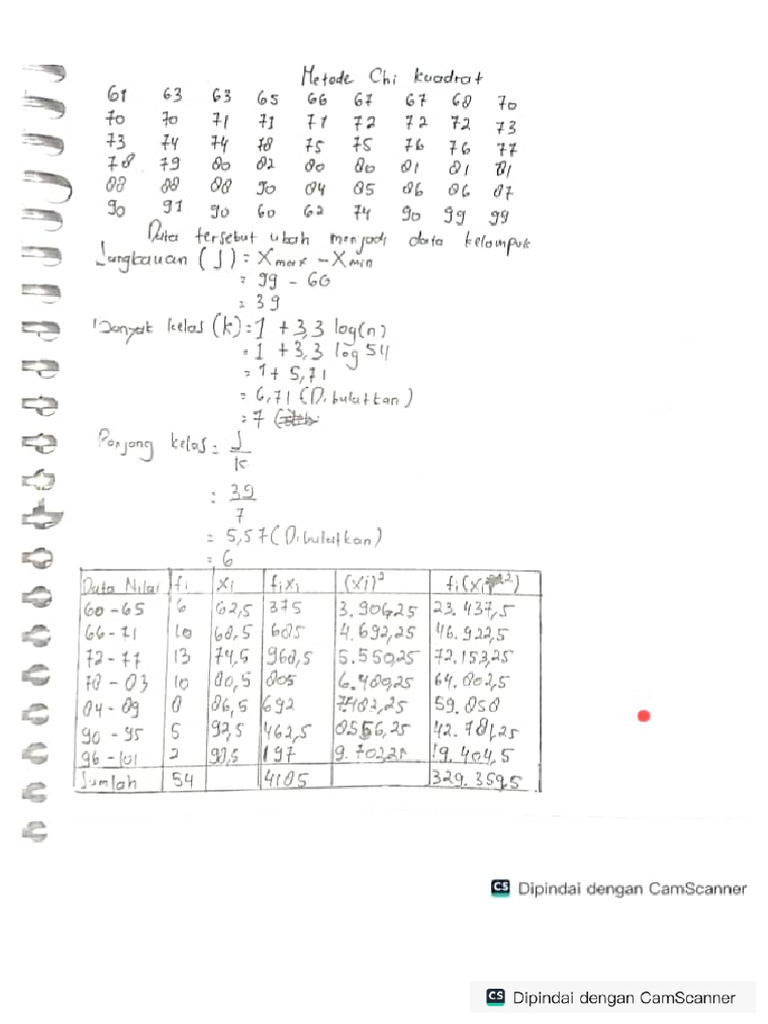 Metode Chi kuadrat
61 63 63 65 66 67 67 68 70
70 70 71 71 71 72 72 72 73
73 74 74 78 75 75 76 76 77
78 79 80 82 80 80 81 81 81
88 88 88 90 84 85 86 86 87
90 91 90 60 62 74 90 99 99
Data tersebut ubah menjadi data kelompok
Jangkauan (J) = Xmax - Xmin
= 99 - 60
= 39
Banyak kelas (k) = 1 + 3,3 log(n)
= 1 + 3,3 log 54
= 1 + 5,71
= 6,71 (Dibulatkan)
= 7
Panjang kelas = J/k
= 39/7
= 5,57 (Dibulatkan)
= 6
Data Nilai fi xi fixi (xi)² fi(xi²)
60-65 6 62,5 375 3.906,25 23.437,5
66-71 10 68,5 685 4.692,25 46.922,5
72-77 13 74,5 968,5 5.550,25 72.153,25
78-83 10 80,5 805 6.480,25 64.802,5
84-89 8 86,5 692 7482,25 59.858
90-95 5 92,5 462,5 8556,25 42.781,25
96-101 2 98,5 197 9.702,25 19.404,5
Jumlah 54 4185 329.359,5
CS Dipindai dengan CamScanner
CS Dipindai dengan CamScanner